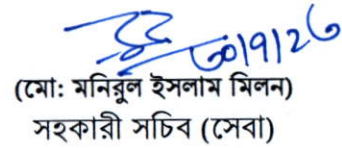 ৩০/৭/২৬
(মো: মনিরুল ইসলাম মিলন)
সহকারী সচিব (সেবা)